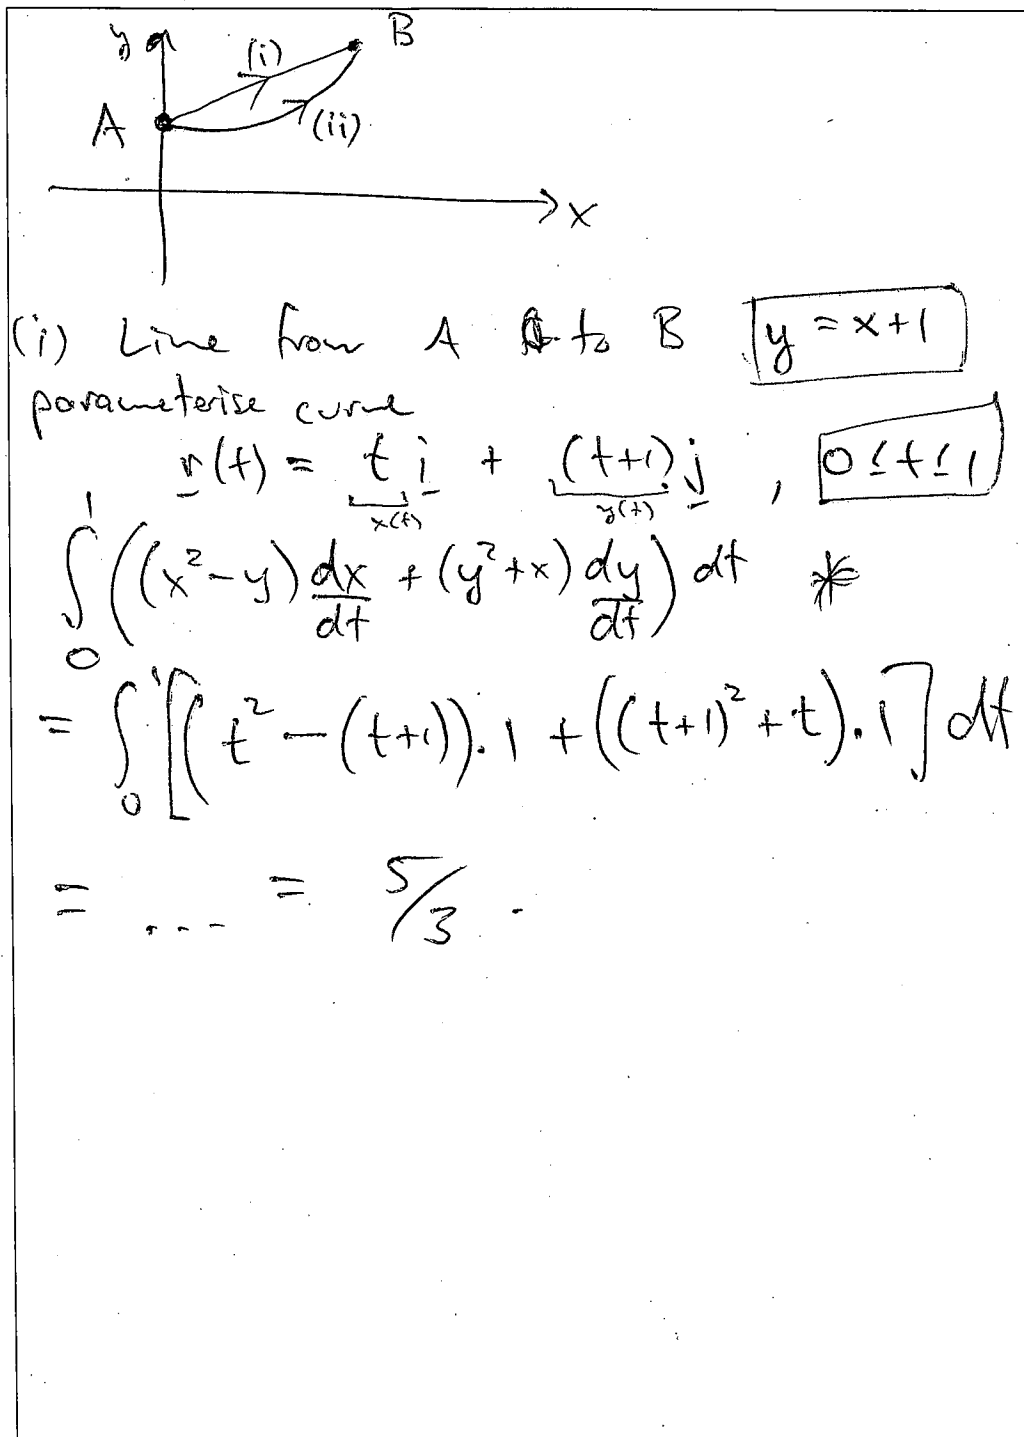 y
B
(i)
A
(ii)
x
(i) Line from A to B y = x+1
parameterise curve
r(t) = t i + (t+1) j , 0 ≤ t ≤ 1
x(t) y(t)
∫₀¹ ((x²-y) dx/dt + (y²+x) dy/dt) dt *
= ∫₀¹ [(t² - (t+1)).1 + ((t+1)² + t).1] dt
= ... = 5/3 .